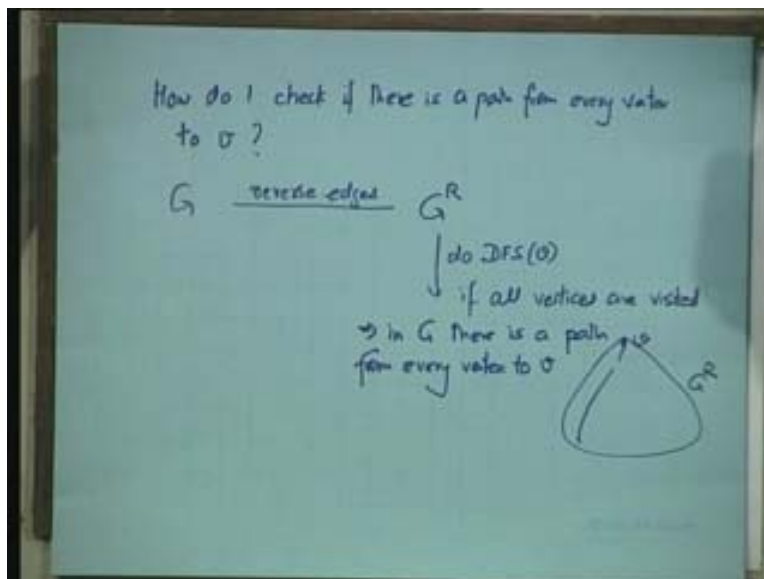 How do I check if there is a path from every vertex
to v ?
G reverse edges G^R
do DFS(v)
if all vertices are visited
⇒ in G there is a path
from every vertex to v
v
G^R